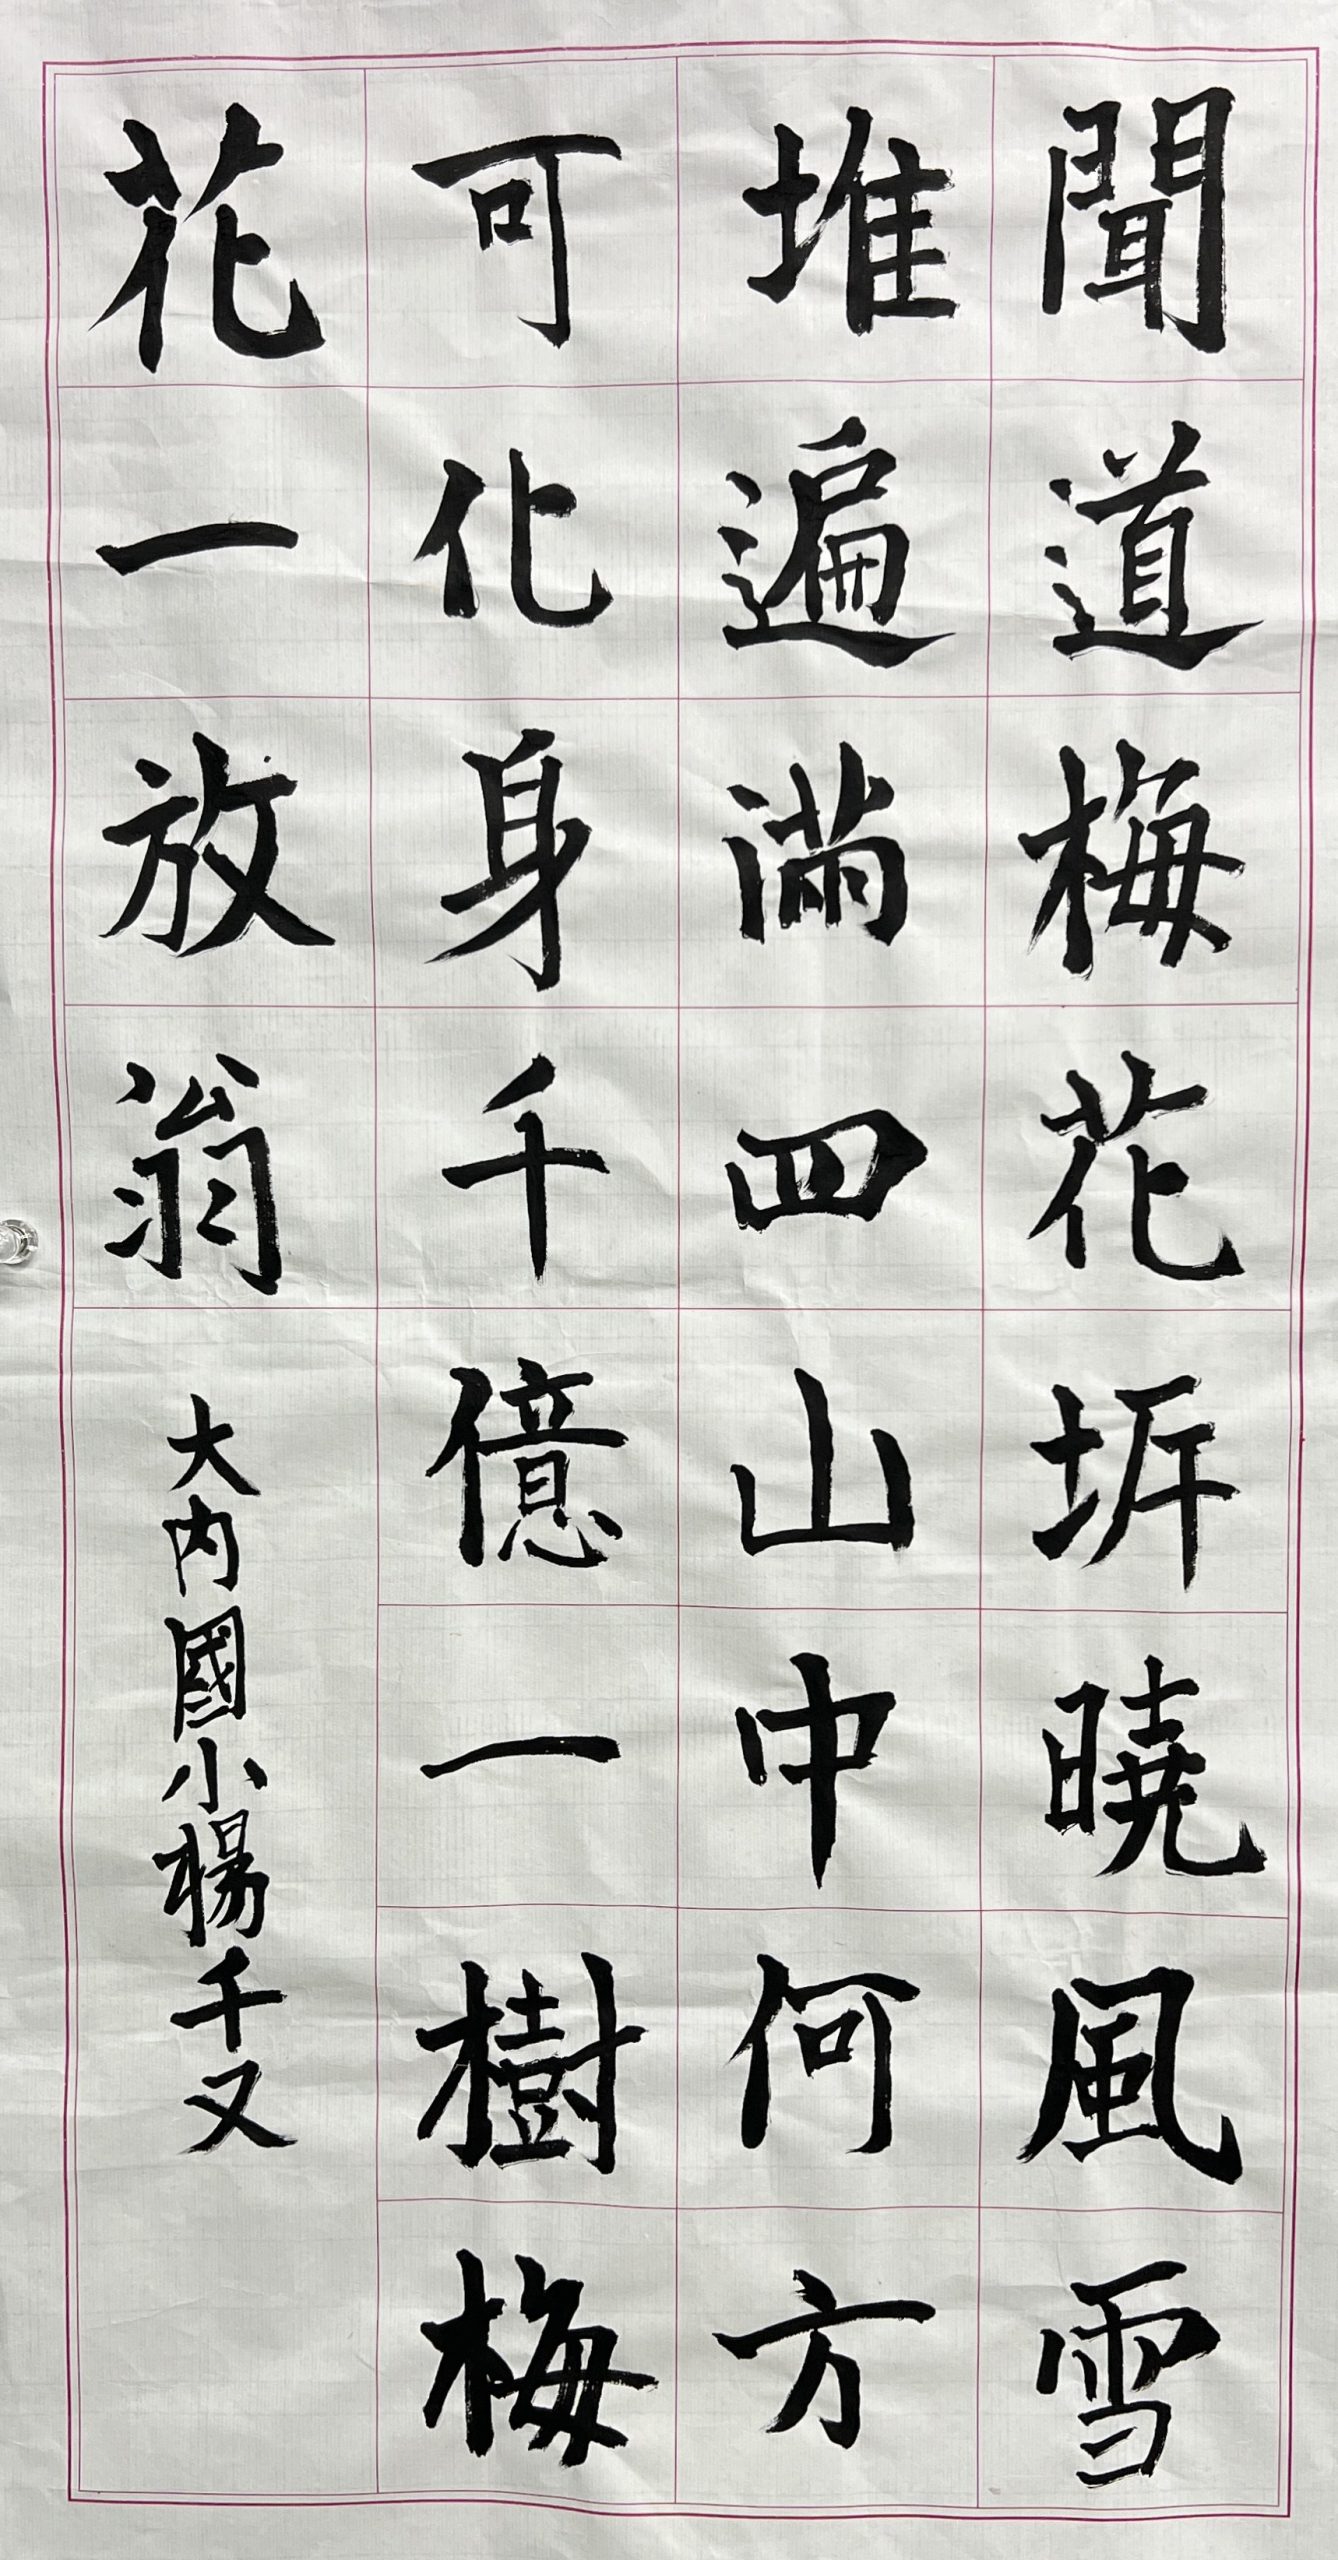 聞道梅花坼曉風雪
堆遍滿四山中何方
可化身千億一樹梅
花一放翁
大內國小楊千又